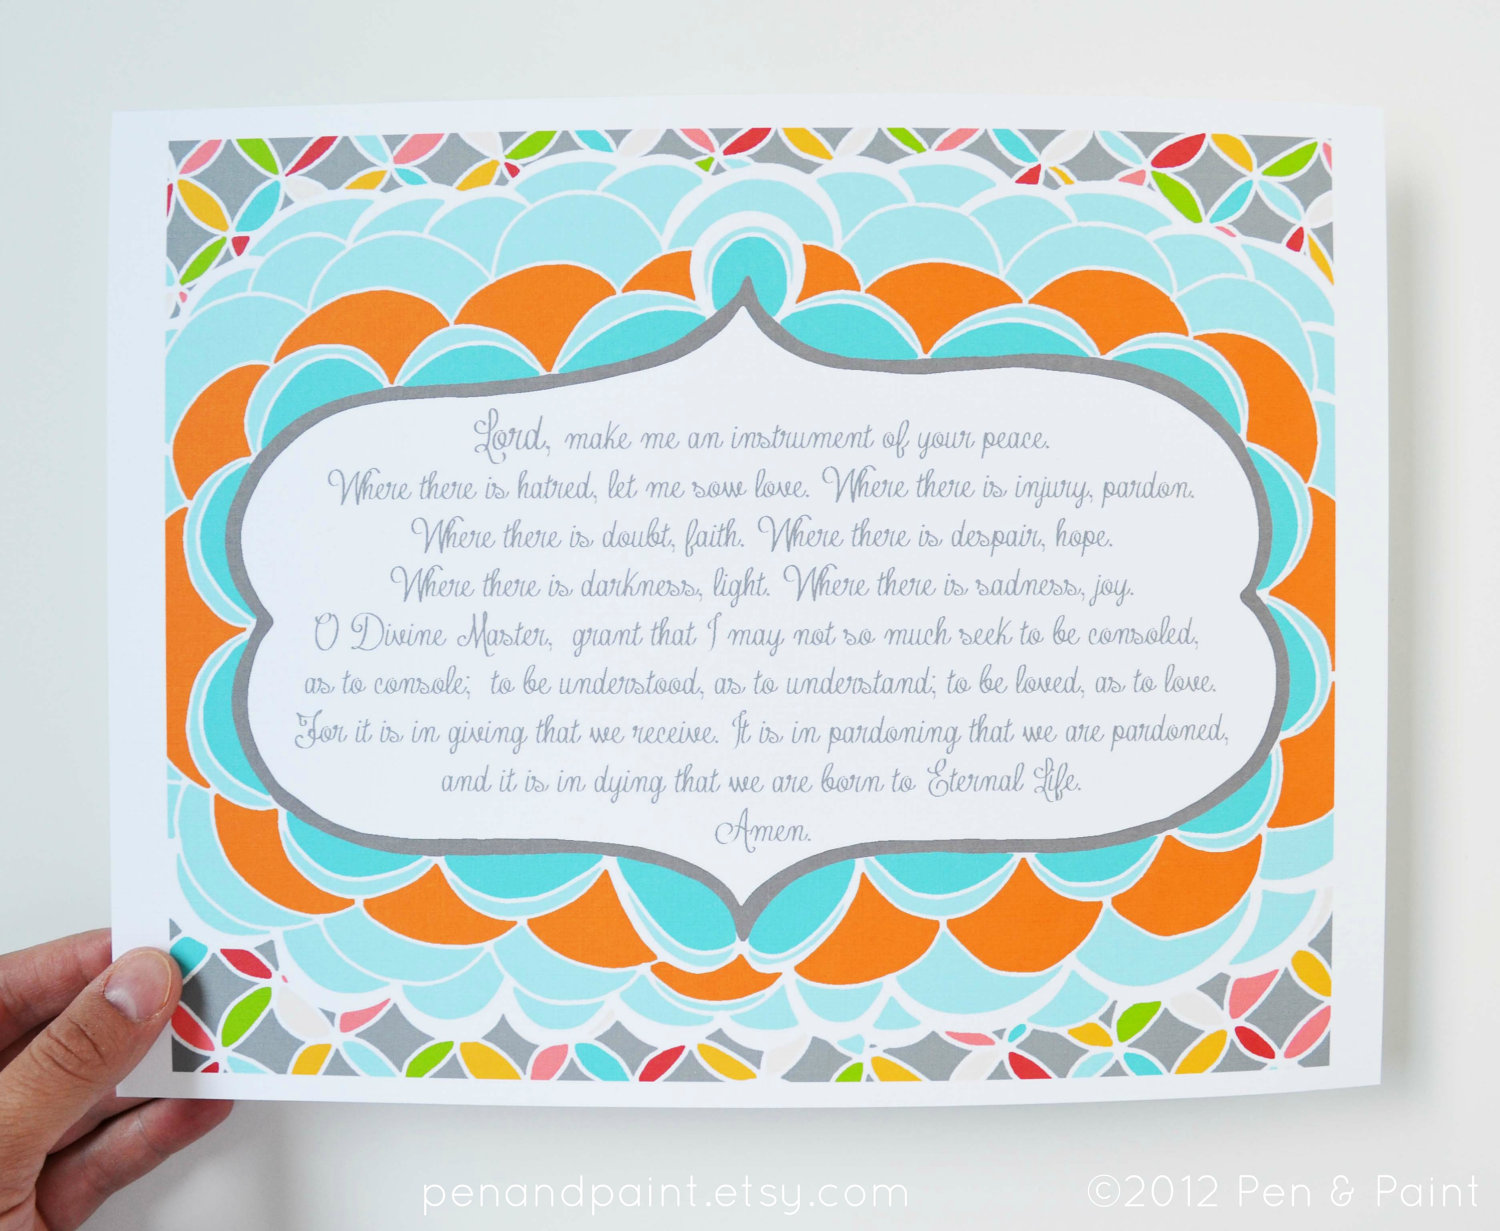 Lord, make me an instrument of your peace.
Where there is hatred, let me sow love. Where there is injury, pardon.
Where there is doubt, faith. Where there is despair, hope.
Where there is darkness, light. Where there is sadness, joy.
O Divine Master, grant that I may not so much seek to be consoled,
as to console; to be understood, as to understand; to be loved, as to love.
For it is in giving that we receive. It is in pardoning that we are pardoned,
and it is in dying that we are born to Eternal Life.
Amen.
penandpaint.etsy.com
©2012 Pen & Paint